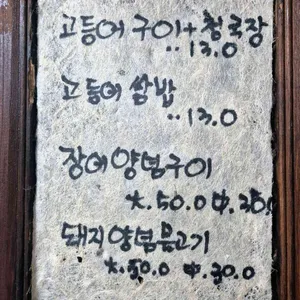 고등어 구이+청국장
..13.0
고등어 쌈밥
..13.0
장어양념구이
大.50.0 中.30.0
돼지양념불고기
大.50.0 中.30.0